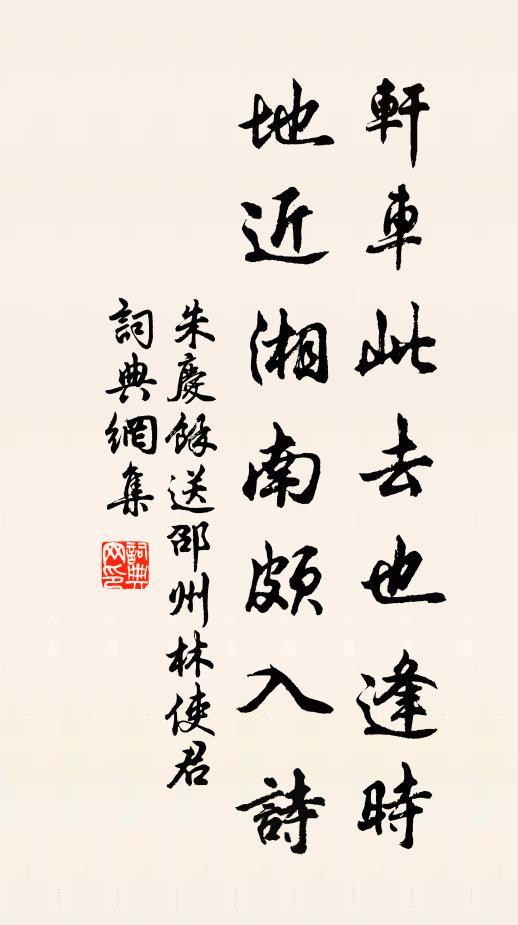 軒車此去也逢時
地近湘南頗入詩
朱慶餘送邵州林使君
詞典網集
詞典网印